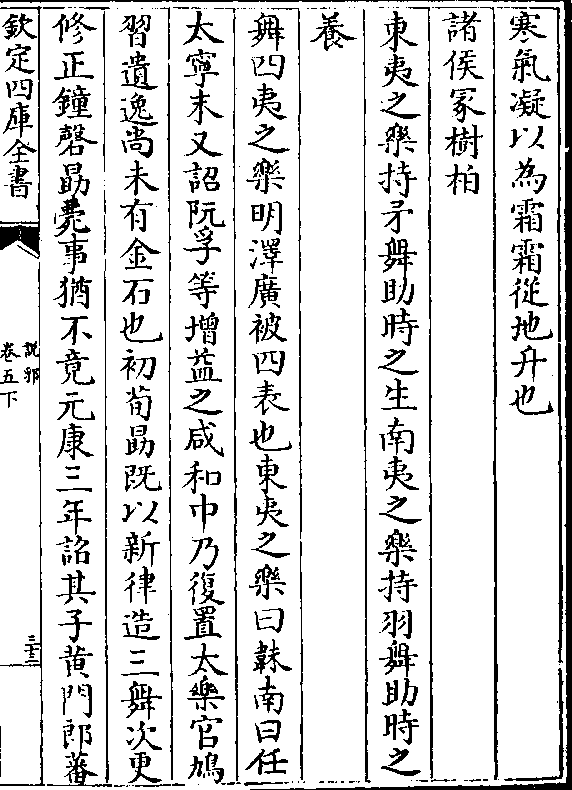 寒氣凝以為霜霜從地升也
諸侯冡樹柏
東夷之樂持矛舞助時之生南夷之樂持羽舞助時之
養
舞四夷之樂明澤廣被四表也東夷之樂曰韎南曰任
太寧末又詔阮孚等增益之咸和中乃復置太樂官鳩
習遺逸尚未有金石也初荀勗既以新律造三舞次更
修正鐘磬勗薨事猶不竟元康三年詔其子黄門郎蕃
欽定四庫全書
說郛
卷五下
三十三